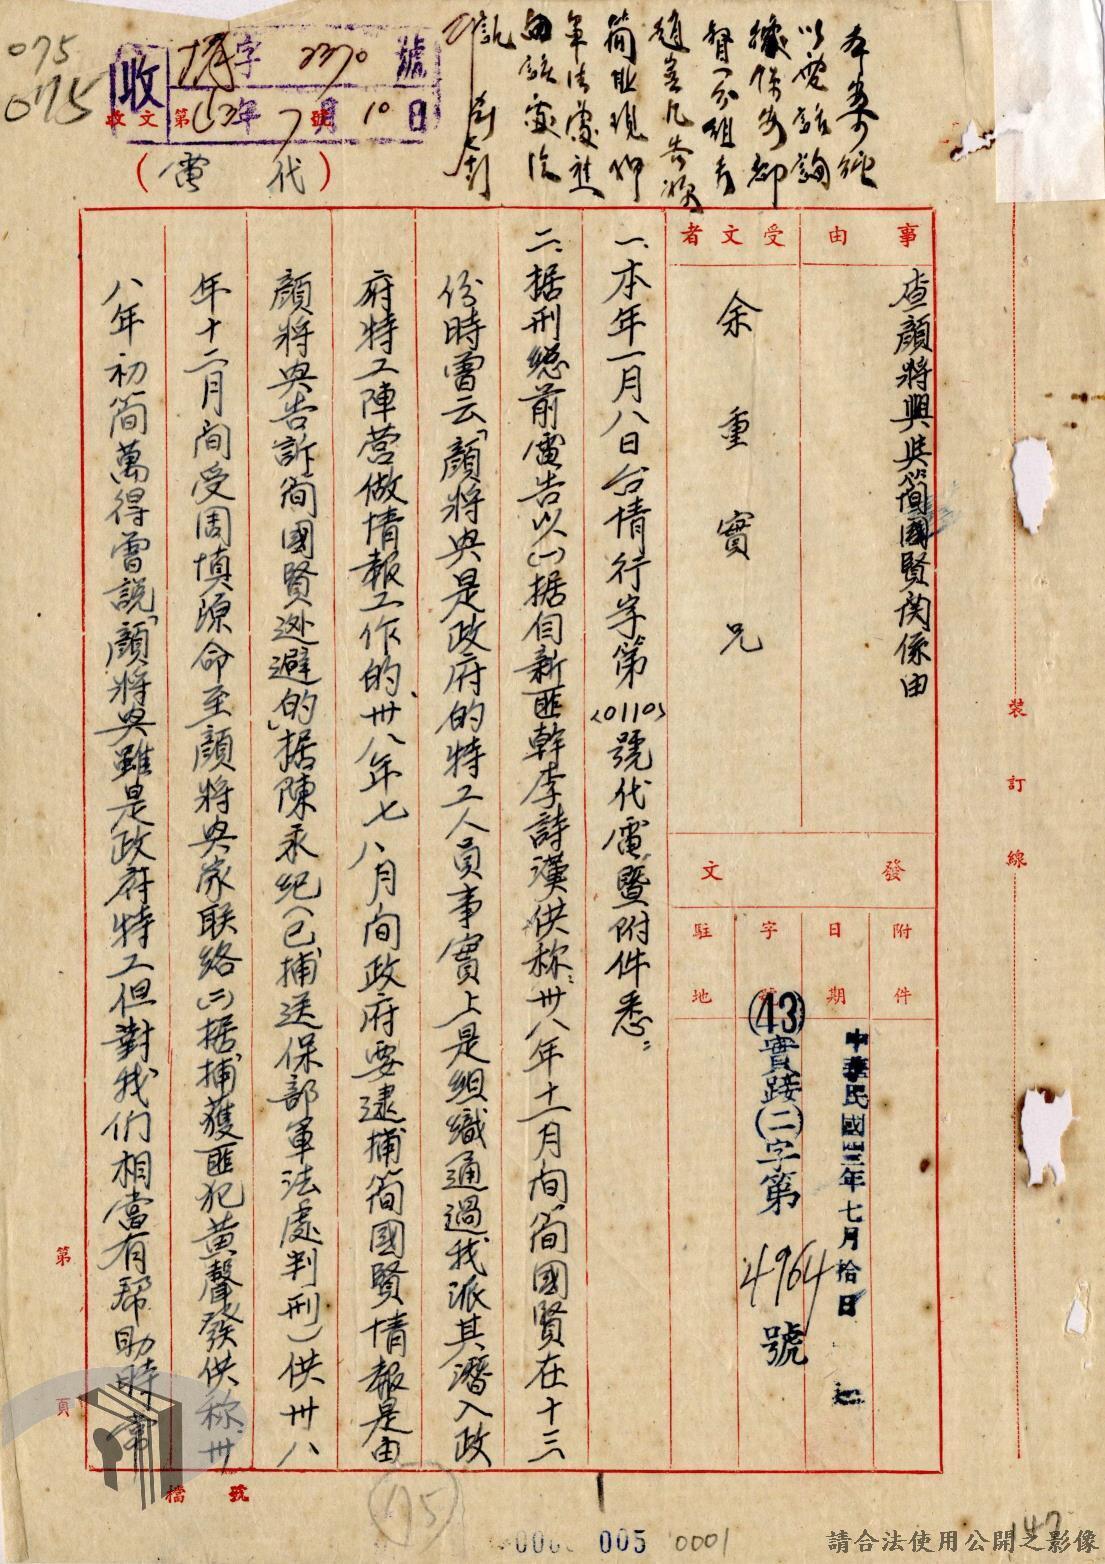 075
075
收
字 2370 號
收文第 號
63年7月10日
(代電)
本案經
以電話詢
據保安部
督一分組
簡匪現押
軍法處
事由
查顏將興與簡國賢関係由
受文者
余重實兄
發文
附件
日期
中華民國四三年七月拾日
字號
(43)實踐(二)字第4964號
駐地
一、本年一月八日台情行字第<0110>號代電暨附件悉:
二、据刑總前電告以(一)据自新匪幹李詩漢供称:卅八年十一月间简國賢在十三
份時曾云「顏將興是政府的特工人員事實上是組織通過我派其潛入政
府特工陣营做情報工作的、卅八年七八月间政府要逮捕简國賢情報是由
顏將興告訴简國賢逃避的」据陳承紀(已捕送保部軍法處判刑)供卅八
年十二月间受周慎源命至顏將興家联絡(二)据捕獲匪犯黄聲發供称:卅
八年初简萬得曾説「顏將興雖是政府特工但對我们相當有帮助時常
裝訂線
第 頁
檔號
175
1
005 0001
147
請合法使用公開之影像